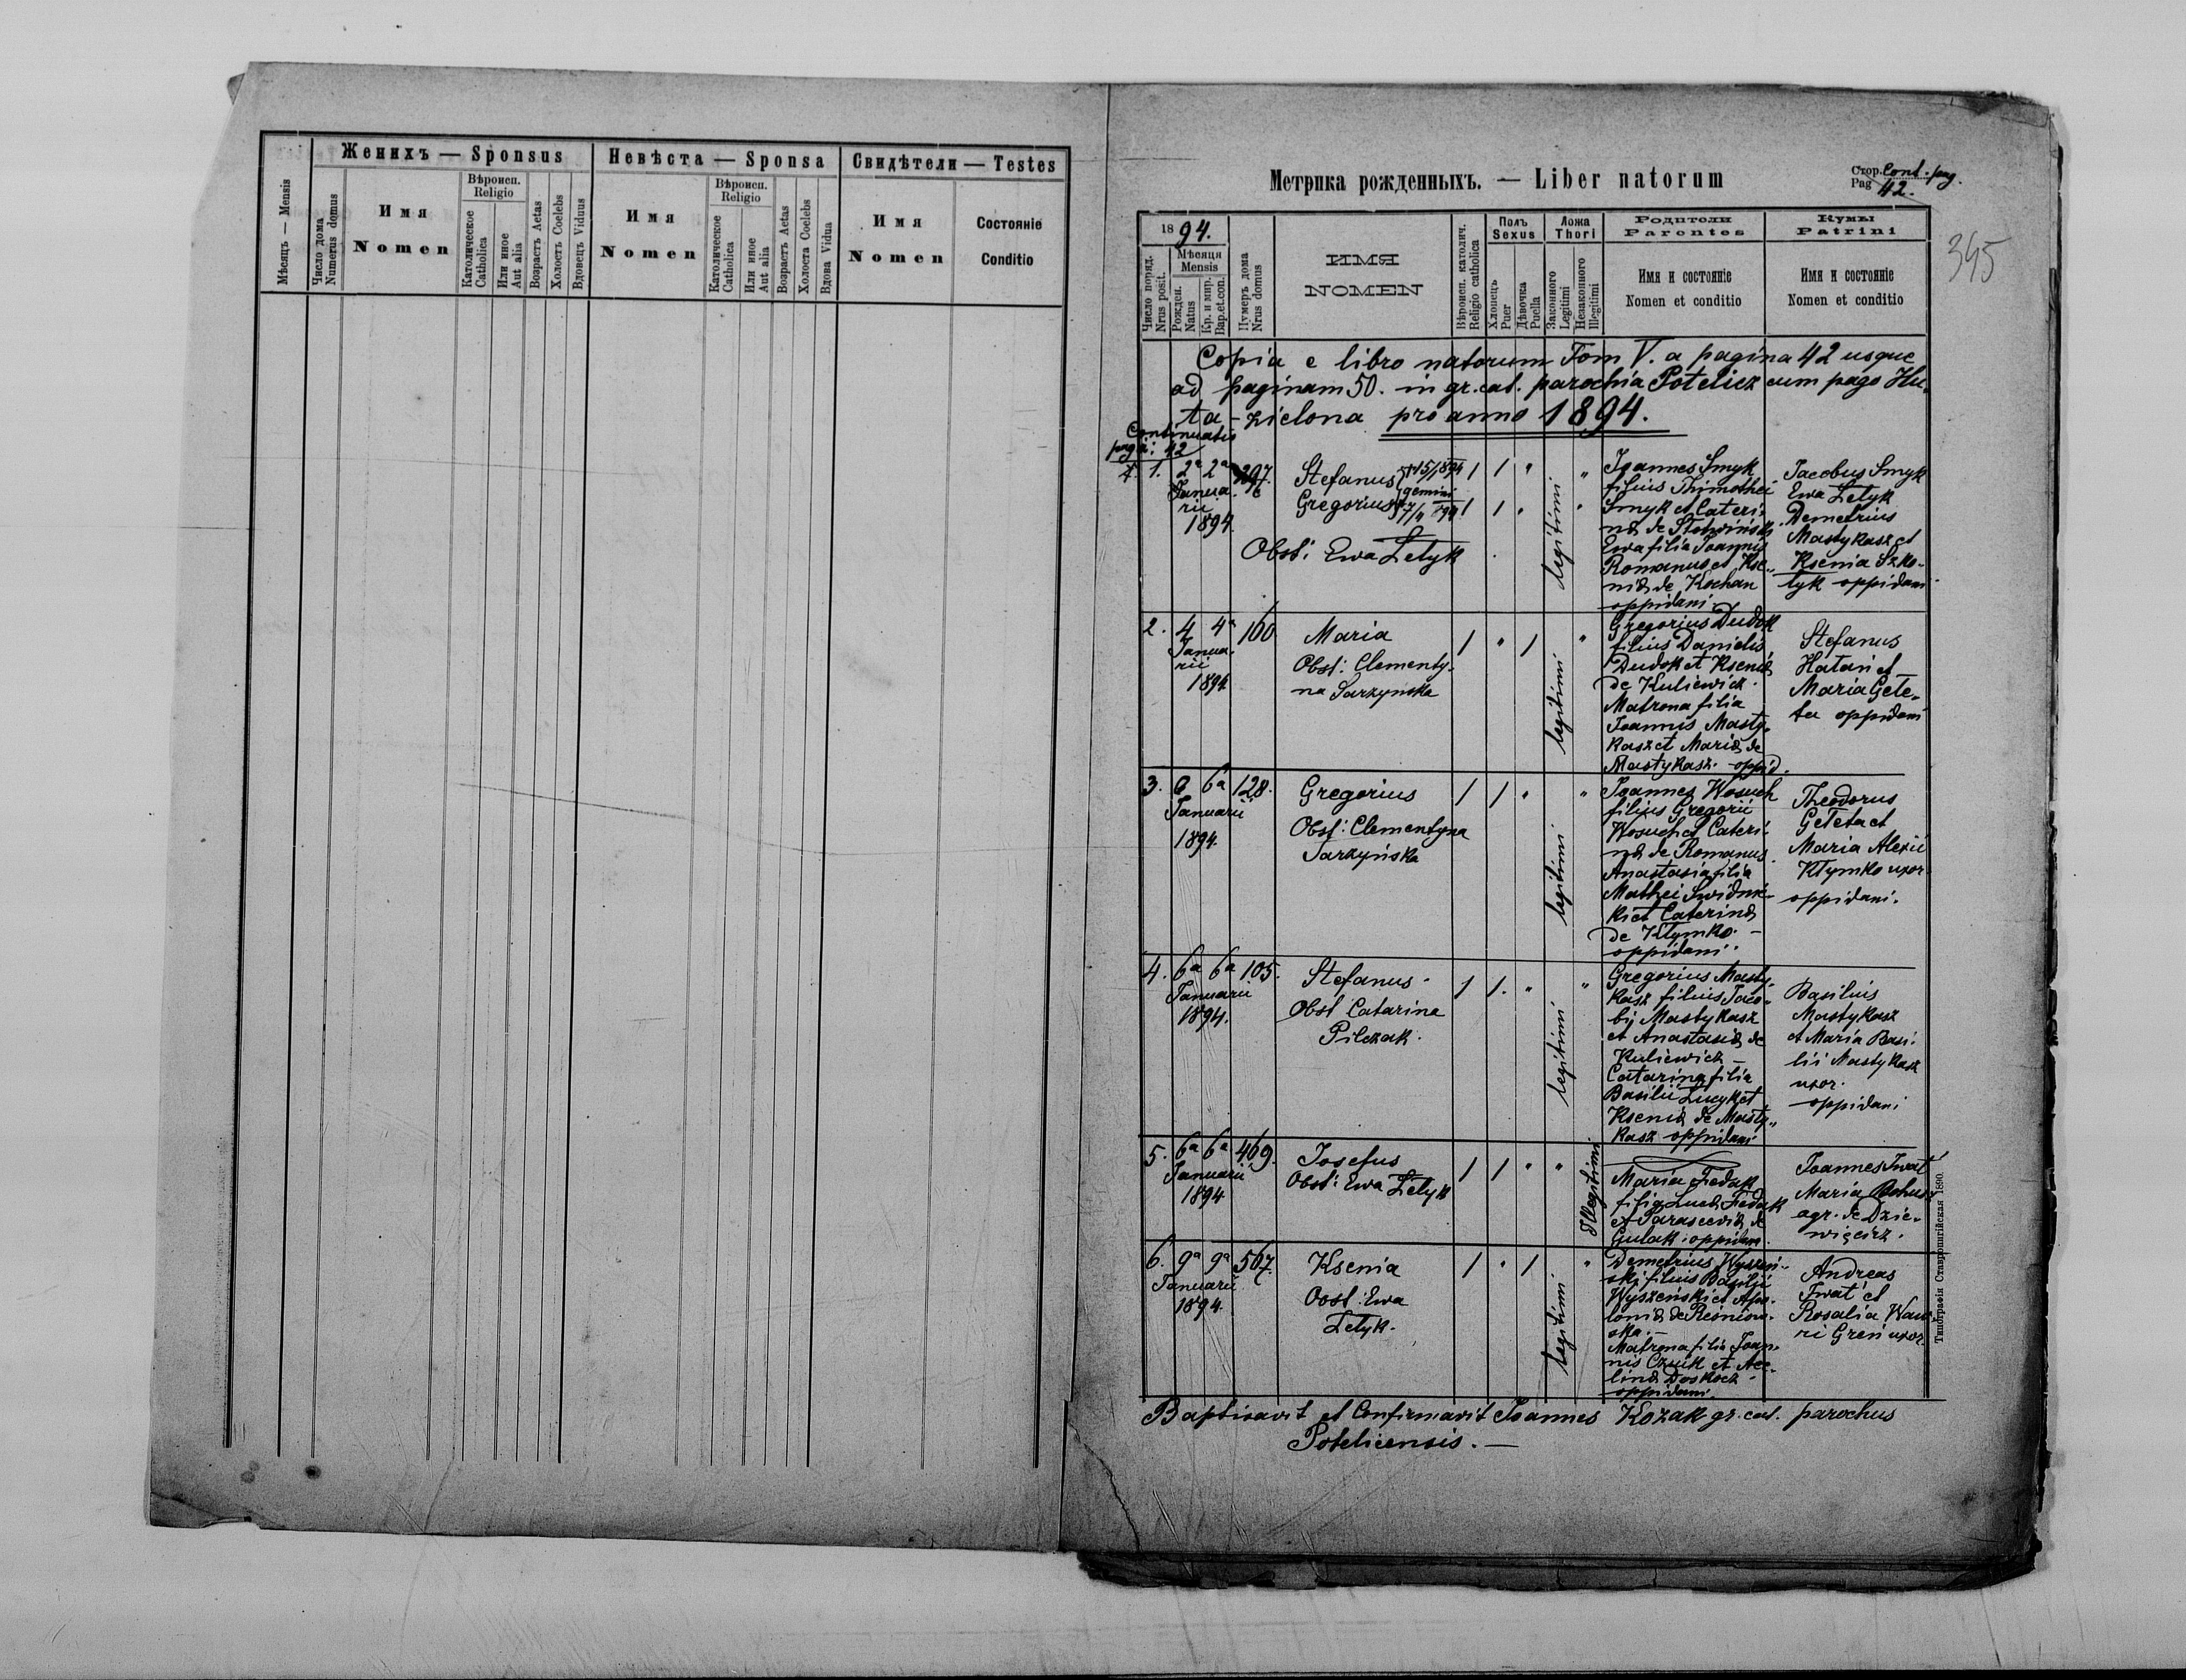 Женихъ — Sponsus
Невѣста — Sponsa
Свидѣтели — Testes
Мѣсяцъ — Mensis
Число дома
Numerus domus
Имя
Nomen
Вѣроисп.
Religio
Католическое
Catholica
Или иное
Aut alia
Возрастъ Aetas
Холостъ Coelebs
Вдовецъ Viduus
Имя
Nomen
Вѣроисп.
Religio
Католическое
Catholica
Или иное
Aut alia
Возрастъ Aetas
Холоста Coelebs
Вдова Vidua
Имя
Nomen
Состояніе
Conditio
Метрика рожденныхъ. — Liber natorum
Стор. Cont. pag.
Pag 42.
345
1894.
Мѣсяця
Mensis
Число поряд.
Nrus posit.
Рожден.
Natus
Кр. и мир.
Bap.et.con.
Нумеръ дома
Nrus domus
ИМЯ
NOMEN
Вѣроисп. католич.
Religio catholica
Полъ
Sexus
Хлопець
Puer
Дѣвочка
Puella
Ложа
Thori
Законного
Legitimi
Незаконного
Illegitimi
Родители
Parentes
Имя и состояніе
Nomen et conditio
Кумы
Patrini
Имя и состояніе
Nomen et conditio
Copia e libro natorum Tom V. a pagina 42 usque
ad paginam 50. in gr. cat. parochia Potelicz cum pago Hu-
ta - zielona pro anno 1894.
Continuatio
pag: 42
1. 2a 2a 397.
Januarii
1894.
Stefanus
gemini
Gregorius
Obst: Ewa Łetyk
1 1 "
1 1 "
legitimi
Joannes Smyk
filius Thimothei
Smyk et Cateri-
næ de
Ewa filia Joannis
Romanus et Kse-
niæ de Kochan
oppidani
Jacobus Smyk
Ewa Łetyk
Demetrius
Mastykasz et
Ksenia Szko-
lyk oppidani
2. 4 4a 160
Janua-
rii
1894.
Maria
Obst: Clementy-
na Tarzynska
1 " 1 "
legitimi
Gregorius Dudok
filius Danielis
Dudok et Kseniæ
de Kuliewicz.
Matrona filia
Joannis Masty-
kasz et Mariæ de
Mastykasz. oppid.
Stefanus
Hatan et
Maria Gete-
ta oppidani
3. 6 6a 128.
Januarii
1894.
Gregorius
Obst: Clementyna
Tarzyńska
1 1 " "
legitimi
Joannes Wosuch
filius Gregorii
Wosuch et Cateri-
næ de Romanus.
Anastasia filia
Mathei Swidnic-
ki et Caterinæ
de Kłymko. —
oppidani.
Theodorus
Geteta et
Maria Alexii
Kłymko uxor
oppidani.
4. 6a 6a 105.
Januarii
1894.
Stefanus.
Obst Catarina
Pilczak.
1 1. " "
legitimi
Gregorius Masty-
kasz filius Jaco-
bi Mastykasz
et Anastasiæ de
Kuliewicz —
Catarina filia
Basilii Łucyk et
Kseniæ de Masty-
kasz oppidani
Basilius
Mastykasz
et Maria Basi-
lii Mastykasz
uxor.
oppidani
5. 6a 6a 469.
Januarii
1894
Josefus
Obst: Ewa Łetyk
1 1 " "
Illegitimi
Maria Fedak
filia Lucæ Fedak
et Parasceviæ de
Gulak. oppidani.
Joannes Iwat
Maria Bohusz
agr. de Dzie-
więcirz.
6. 9a 9a 567.
Januarii
1894.
Ksenia
Obst: Ewa
Łetyk.
1 " 1 "
legitimi
Demetrius Wyszen-
ski filius Basilii
Wyszenski et Apo-
loniæ de
ska. —
Matrona filia Joan-
nis Czuik et Ace-
linæ Doskocz
oppidani.
Andreas
Iwat et
Rosalia Waw-
ri Greń uxor.
Baptisavit et Confirmavit Joannes Kozak gr. cat. parochus
Potelicensis. —
Типографія Ставропигійская 1890.